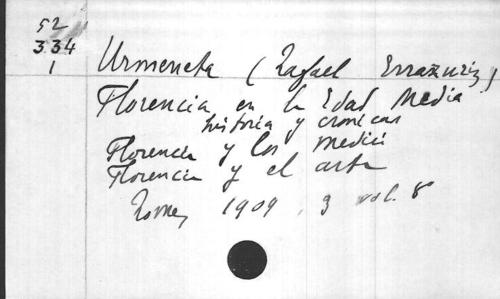 52
334
1
Urmeneta (Rafael Errazuriz)
Florencia en la Edad Media
historia y cronicas
Florencia y los Medici
Florencia y el arte
Rome, 1909, 3 vol. 8°